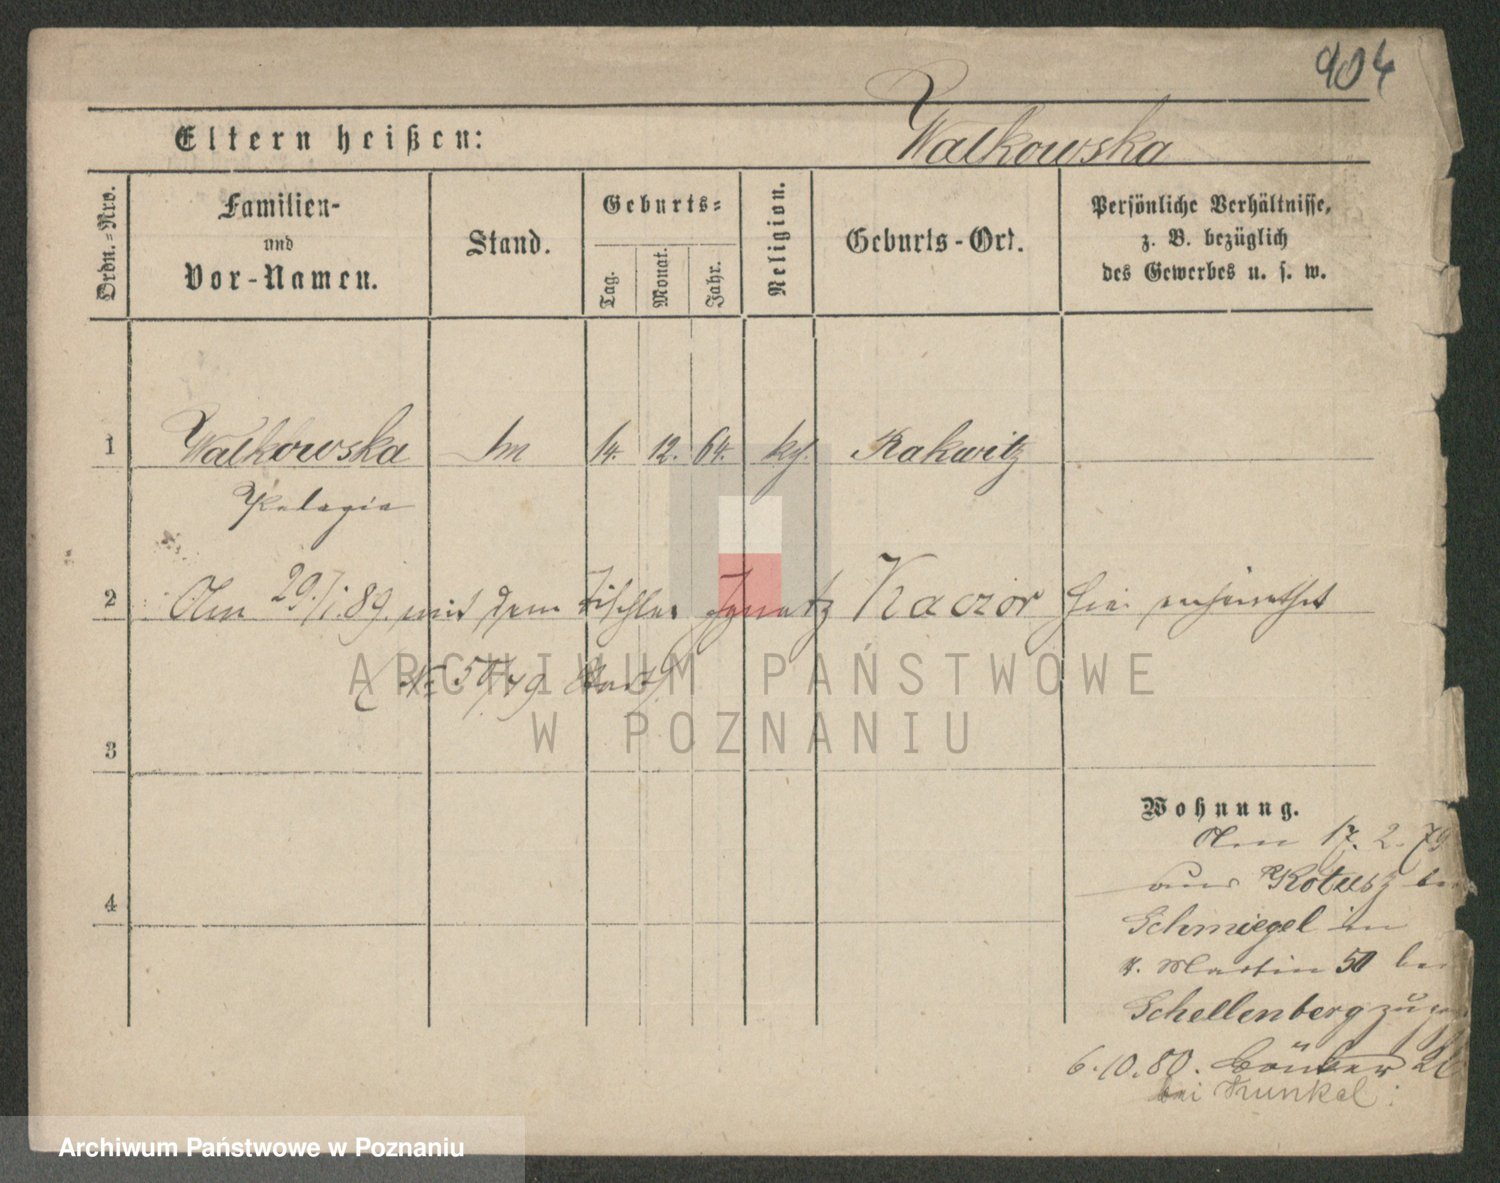 904
Eltern heißen: Walkowska
Ordn.=Nro.
Familien-
und
Vor-Namen.
Stand.
Geburts=
Tag.
Monat.
Jahr.
Religion.
Geburts-Ort.
Persönliche Verhältnisse,
z. B. bezüglich
des Gewerbes u. s. w.
1 Walkowska 14. 12. 64. Rakwitz
Pelagia
2 Am 29./1.89. mit dem Tischler Ignatz Kaczor hier verheirathet
3
4
Wohnung.
Am 17. 2. 79
aus Kotusz bei
Schmiegel in
St. Martin 50 bei
Schellenberg
6.10.80.
bei Kunkel
ARCHIWUM PAŃSTWOWE
W POZNANIU
Archiwum Państwowe w Poznaniu